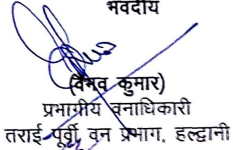 भवदीय
(वैभव कुमार)
प्रभागीय वनाधिकारी
तराई पूर्वी वन प्रभाग, हल्द्वानी